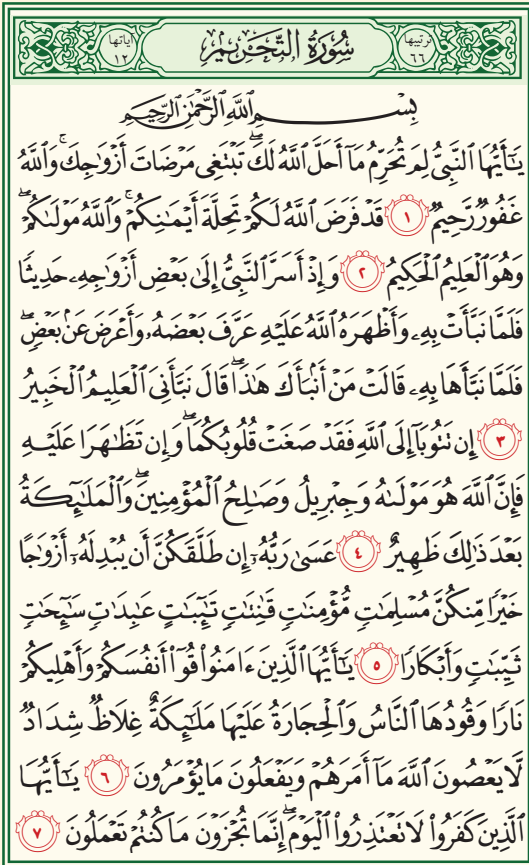 ترتيبها ٦٦ سُورَةُ التَّحْرِيمِ آياتها ١٢
بِسْمِ ٱللَّهِ ٱلرَّحْمَٰنِ ٱلرَّحِيمِ
يَٰٓأَيُّهَا ٱلنَّبِىُّ لِمَ تُحَرِّمُ مَآ أَحَلَّ ٱللَّهُ لَكَۖ تَبْتَغِى مَرْضَاتَ أَزْوَٰجِكَۚ وَٱللَّهُ
غَفُورٌ رَّحِيمٌ ١ قَدْ فَرَضَ ٱللَّهُ لَكُمْ تَحِلَّةَ أَيْمَٰنِكُمْۚ وَٱللَّهُ مَوْلَىٰكُمْۖ
وَهُوَ ٱلْعَلِيمُ ٱلْحَكِيمُ ٢ وَإِذْ أَسَرَّ ٱلنَّبِىُّ إِلَىٰ بَعْضِ أَزْوَٰجِهِۦ حَدِيثًا
فَلَمَّا نَبَّأَتْ بِهِۦ وَأَظْهَرَهُ ٱللَّهُ عَلَيْهِ عَرَّفَ بَعْضَهُۥ وَأَعْرَضَ عَنۢ بَعْضٍۖ
فَلَمَّا نَبَّأَهَا بِهِۦ قَالَتْ مَنْ أَنۢبَأَكَ هَٰذَاۖ قَالَ نَبَّأَنِىَ ٱلْعَلِيمُ ٱلْخَبِيرُ
٣ إِن تَتُوبَآ إِلَى ٱللَّهِ فَقَدْ صَغَتْ قُلُوبُكُمَاۖ وَإِن تَظَٰهَرَا عَلَيْهِ
فَإِنَّ ٱللَّهَ هُوَ مَوْلَىٰهُ وَجِبْرِيلُ وَصَٰلِحُ ٱلْمُؤْمِنِينَۖ وَٱلْمَلَٰٓئِكَةُ
بَعْدَ ذَٰلِكَ ظَهِيرٌ ٤ عَسَىٰ رَبُّهُۥٓ إِن طَلَّقَكُنَّ أَن يُبْدِلَهُۥٓ أَزْوَٰجًا
خَيْرًا مِّنكُنَّ مُسْلِمَٰتٍ مُّؤْمِنَٰتٍ قَٰنِتَٰتٍ تَٰٓئِبَٰتٍ عَٰبِدَٰتٍ سَٰٓئِحَٰتٍ
ثَيِّبَٰتٍ وَأَبْكَارًا ٥ يَٰٓأَيُّهَا ٱلَّذِينَ ءَامَنُوا۟ قُوٓا۟ أَنفُسَكُمْ وَأَهْلِيكُمْ
نَارًا وَقُودُهَا ٱلنَّاسُ وَٱلْحِجَارَةُ عَلَيْهَا مَلَٰٓئِكَةٌ غِلَاظٌ شِدَادٌ
لَّا يَعْصُونَ ٱللَّهَ مَآ أَمَرَهُمْ وَيَفْعَلُونَ مَا يُؤْمَرُونَ ٦ يَٰٓأَيُّهَا
ٱلَّذِينَ كَفَرُوا۟ لَا تَعْتَذِرُوا۟ ٱلْيَوْمَۖ إِنَّمَا تُجْزَوْنَ مَا كُنتُمْ تَعْمَلُونَ ٧